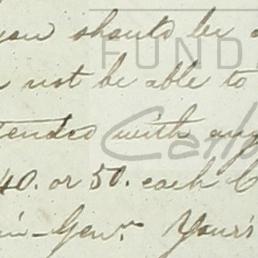 you should be a
not be able to
tended with any
40. or 50. each C
in-Genr. Your's
FUND
Catl